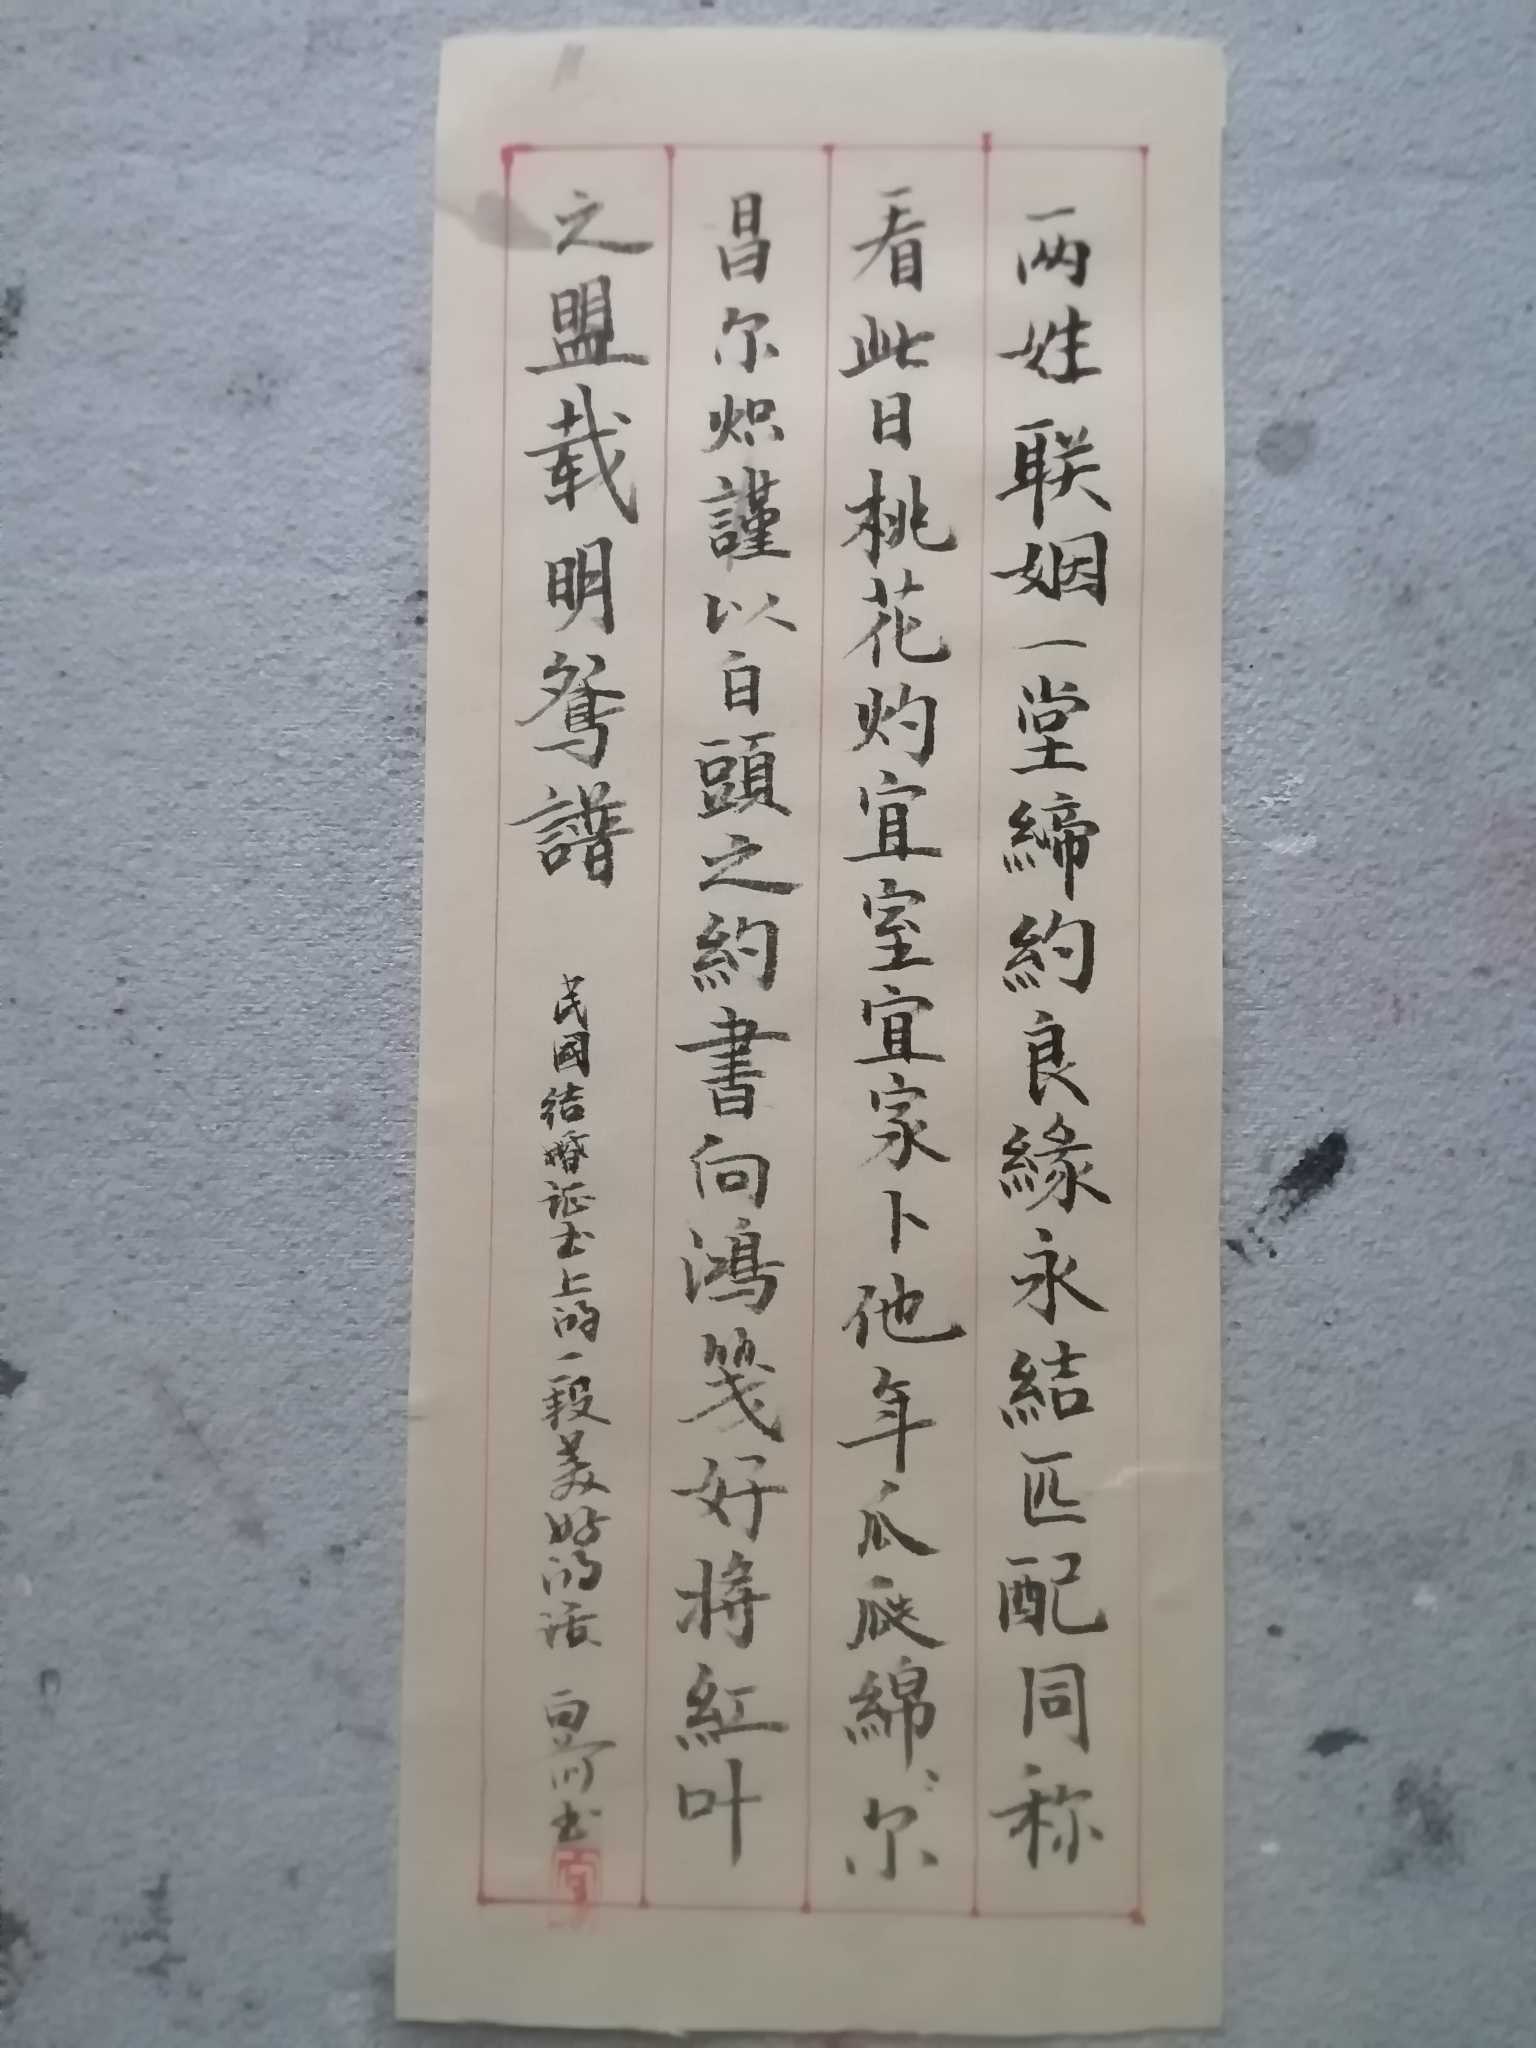 两姓联姻一堂締約良緣永結匹配同称
看此日桃花灼宜室宜家卜他年瓜瓞綿〻尔
昌尔炽謹以白頭之約書向鴻笺好将紅叶
之盟载明鸳譜
民國结婚证书上的一段美好的话
书